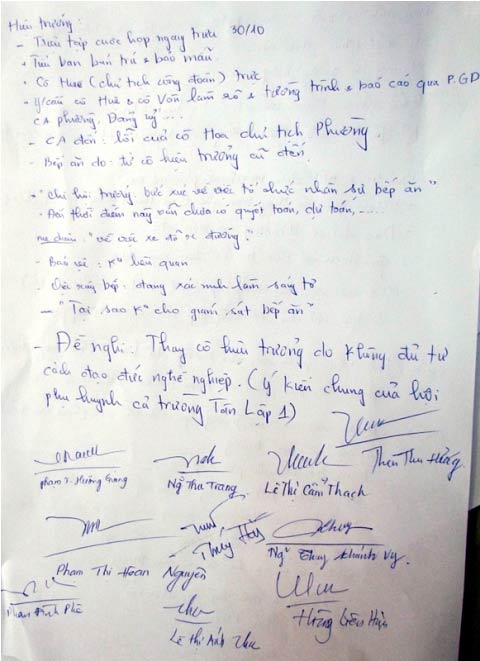 Hiệu trưởng:
- Triệu tập cuộc họp ngay trước 30/10
- Tìm ban bán trú & bảo mẫu
- Cô Huệ (chủ tịch công đoàn) trực
- Y/cầu cô Huệ & cô Vốn làm rõ & tường trình & báo cáo qua P.GD
CA phường, Đảng uỷ...
- CA đến: lỗi của cô Hoa chủ tịch Phường.
- Bếp ăn do: từ cô hiệu trưởng cũ đến.
- "Chi hội trưởng bức xúc về việc tổ chức nhân sự bếp ăn"
- thời điểm này vẫn chưa có quyết toán, dự toán,.....
"về việc xe đổ đường"
- Bảo vệ: K° liên quan
- bếp: đang xác minh làm sáng tỏ
- "Tại sao K° cho giám sát bếp ăn"
- Đề nghị: Thay cô hiệu trưởng do không đủ tư
cách đạo đức nghề nghiệp. (Ý kiến chung của hội
phụ huynh cả trường Tân Lập 1)
Phạm T. Hương Giang
Ng Thu Trang
Lê Thị Cẩm Thạch
Thu Hương
Phạm Thị Hoan
Nguyên
Thúy
Ng Thuy Khánh Vy.
Phan Đình Phê
Lê Thị Ánh
Hồng